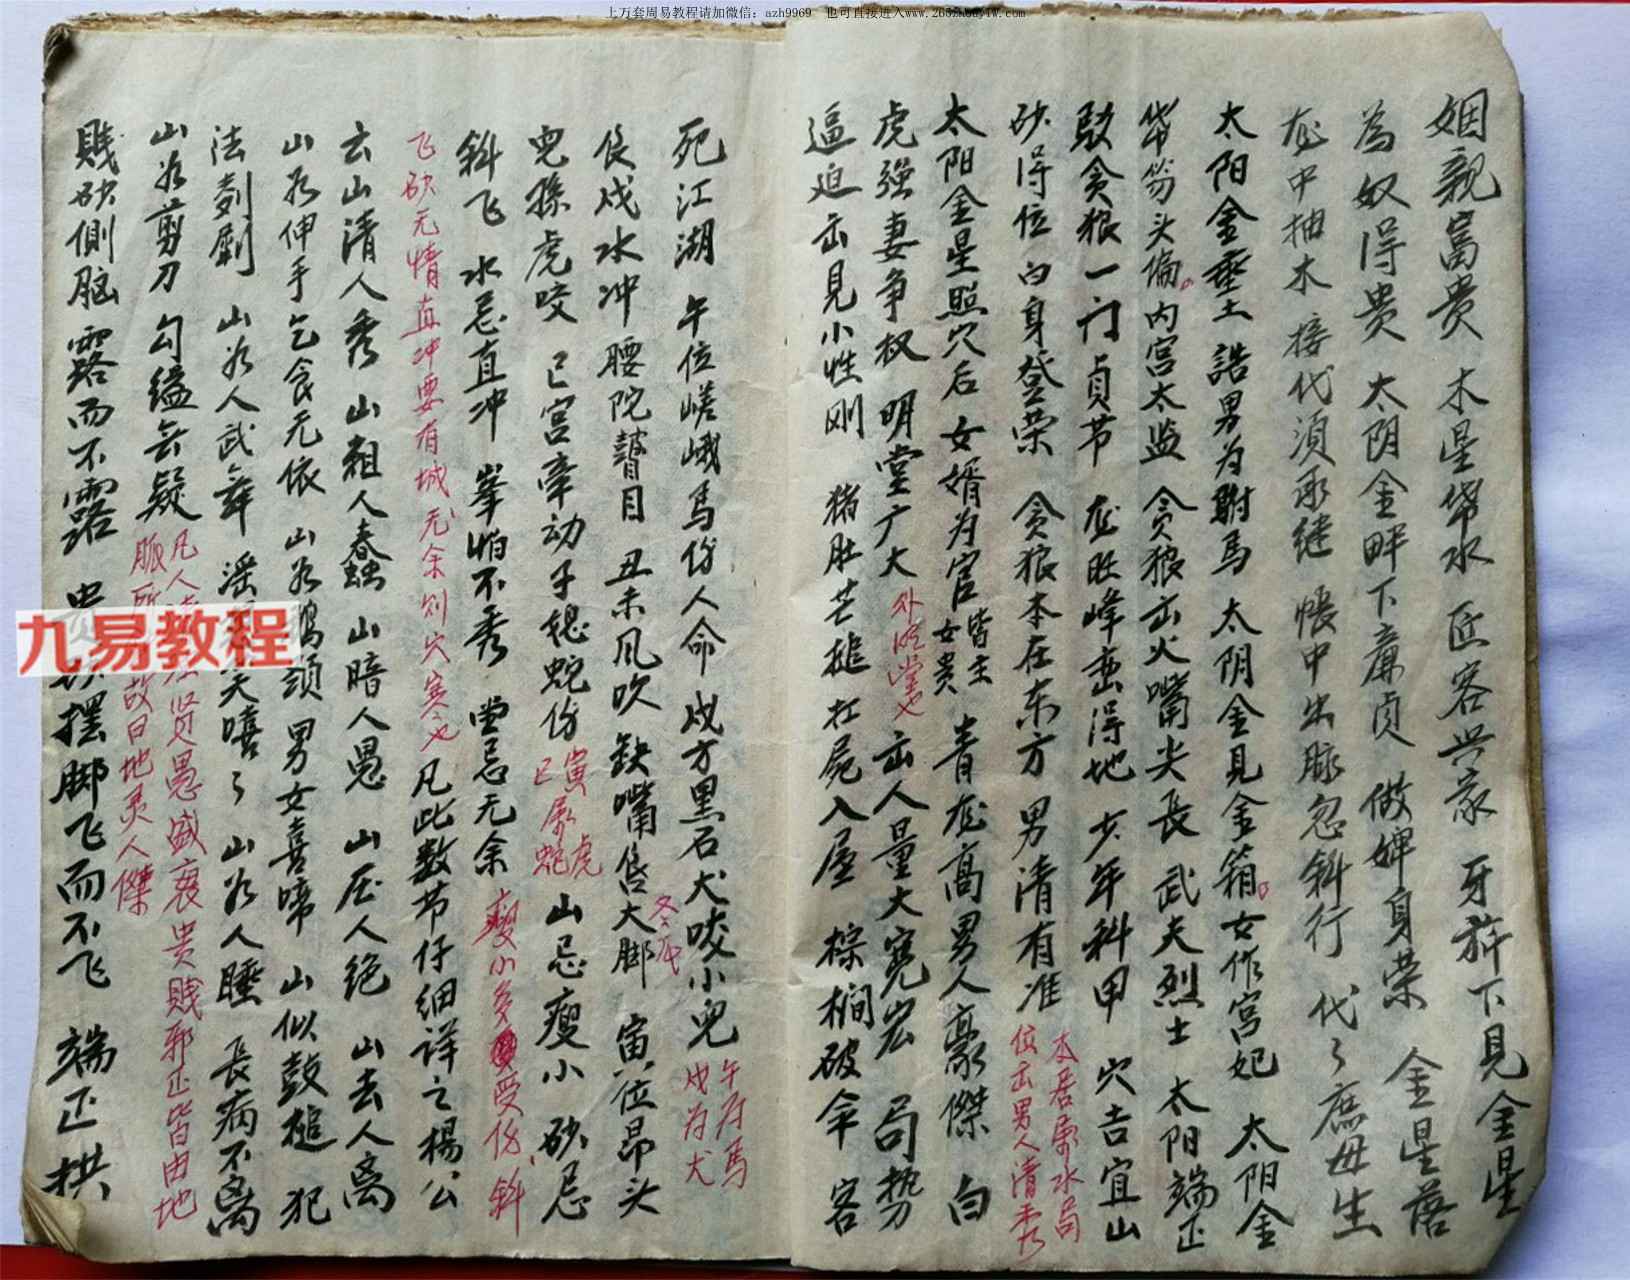 上万套周易教程请加微信：azh9969 也可直接进入www.265zhouyiw.com
姻親富贵 木星帶水 匠客兴家 牙旂下見金星
為奴得贵 太阴金畔下廉贞 做婢身荣 金星落
龙中抽木 接代須承继 帳中出脉忽斜行 代々庶母生
太阳金垂土 誥男为駙馬 太阴金見金箱女作宫妃 太阴金
帶笏头偏内宫太监 贪狼出火嘴尖長 武夫烈士 太阳端正
贪狼一门贞节 龙旺峰峦得地 少年科甲 穴吉宜山
砂得位白身登荣 贪狼本在东方 男清有准
本居属水局
位出男人清秀
太阳金星照穴后女婿为官
皆主
女贵
青龙高男人豪傑 白
虎強妻争权 明堂广大
外明堂也
出人量大宽宏 局势
逼迫出見小性刚 猪肚芒搥扛屍入屋 棕榈破伞 客
死江湖 午位嵯峨馬份人命 戍方黑石犬咬小兒
午为馬
戍为犬
艮戍水冲 腰陀瞽目 丑未风吹 缺嘴售大脚 寅位昂头
兒孫虎咬 已宫牵动子孫蛇份
寅属虎
已属蛇
山忌瘦小 砂忌
斜飞 水忌直冲 峯怕不秀 堂忌无余
瘦小多受份，斜
飞砂无情直冲要有城，无余则穴寒也
凡此数节仔细详之 楊公
云山清人秀 山粗人蠢 山暗人愚 山压人绝 山去人离
山若伸手乞食无依 山若鹅頭 男女喜啼 山似鼓搥 犯
法刺剮 山若人武舞 淫 笑嘻々 山若人睡 長病不离
山若剪刀 勾缢無疑
凡人 贤愚盛衰贵賤邪正皆由地
脈所 故曰地灵人傑
賤砂側脳露而不露 摆脚飞而不飞 端正拱
九易教程